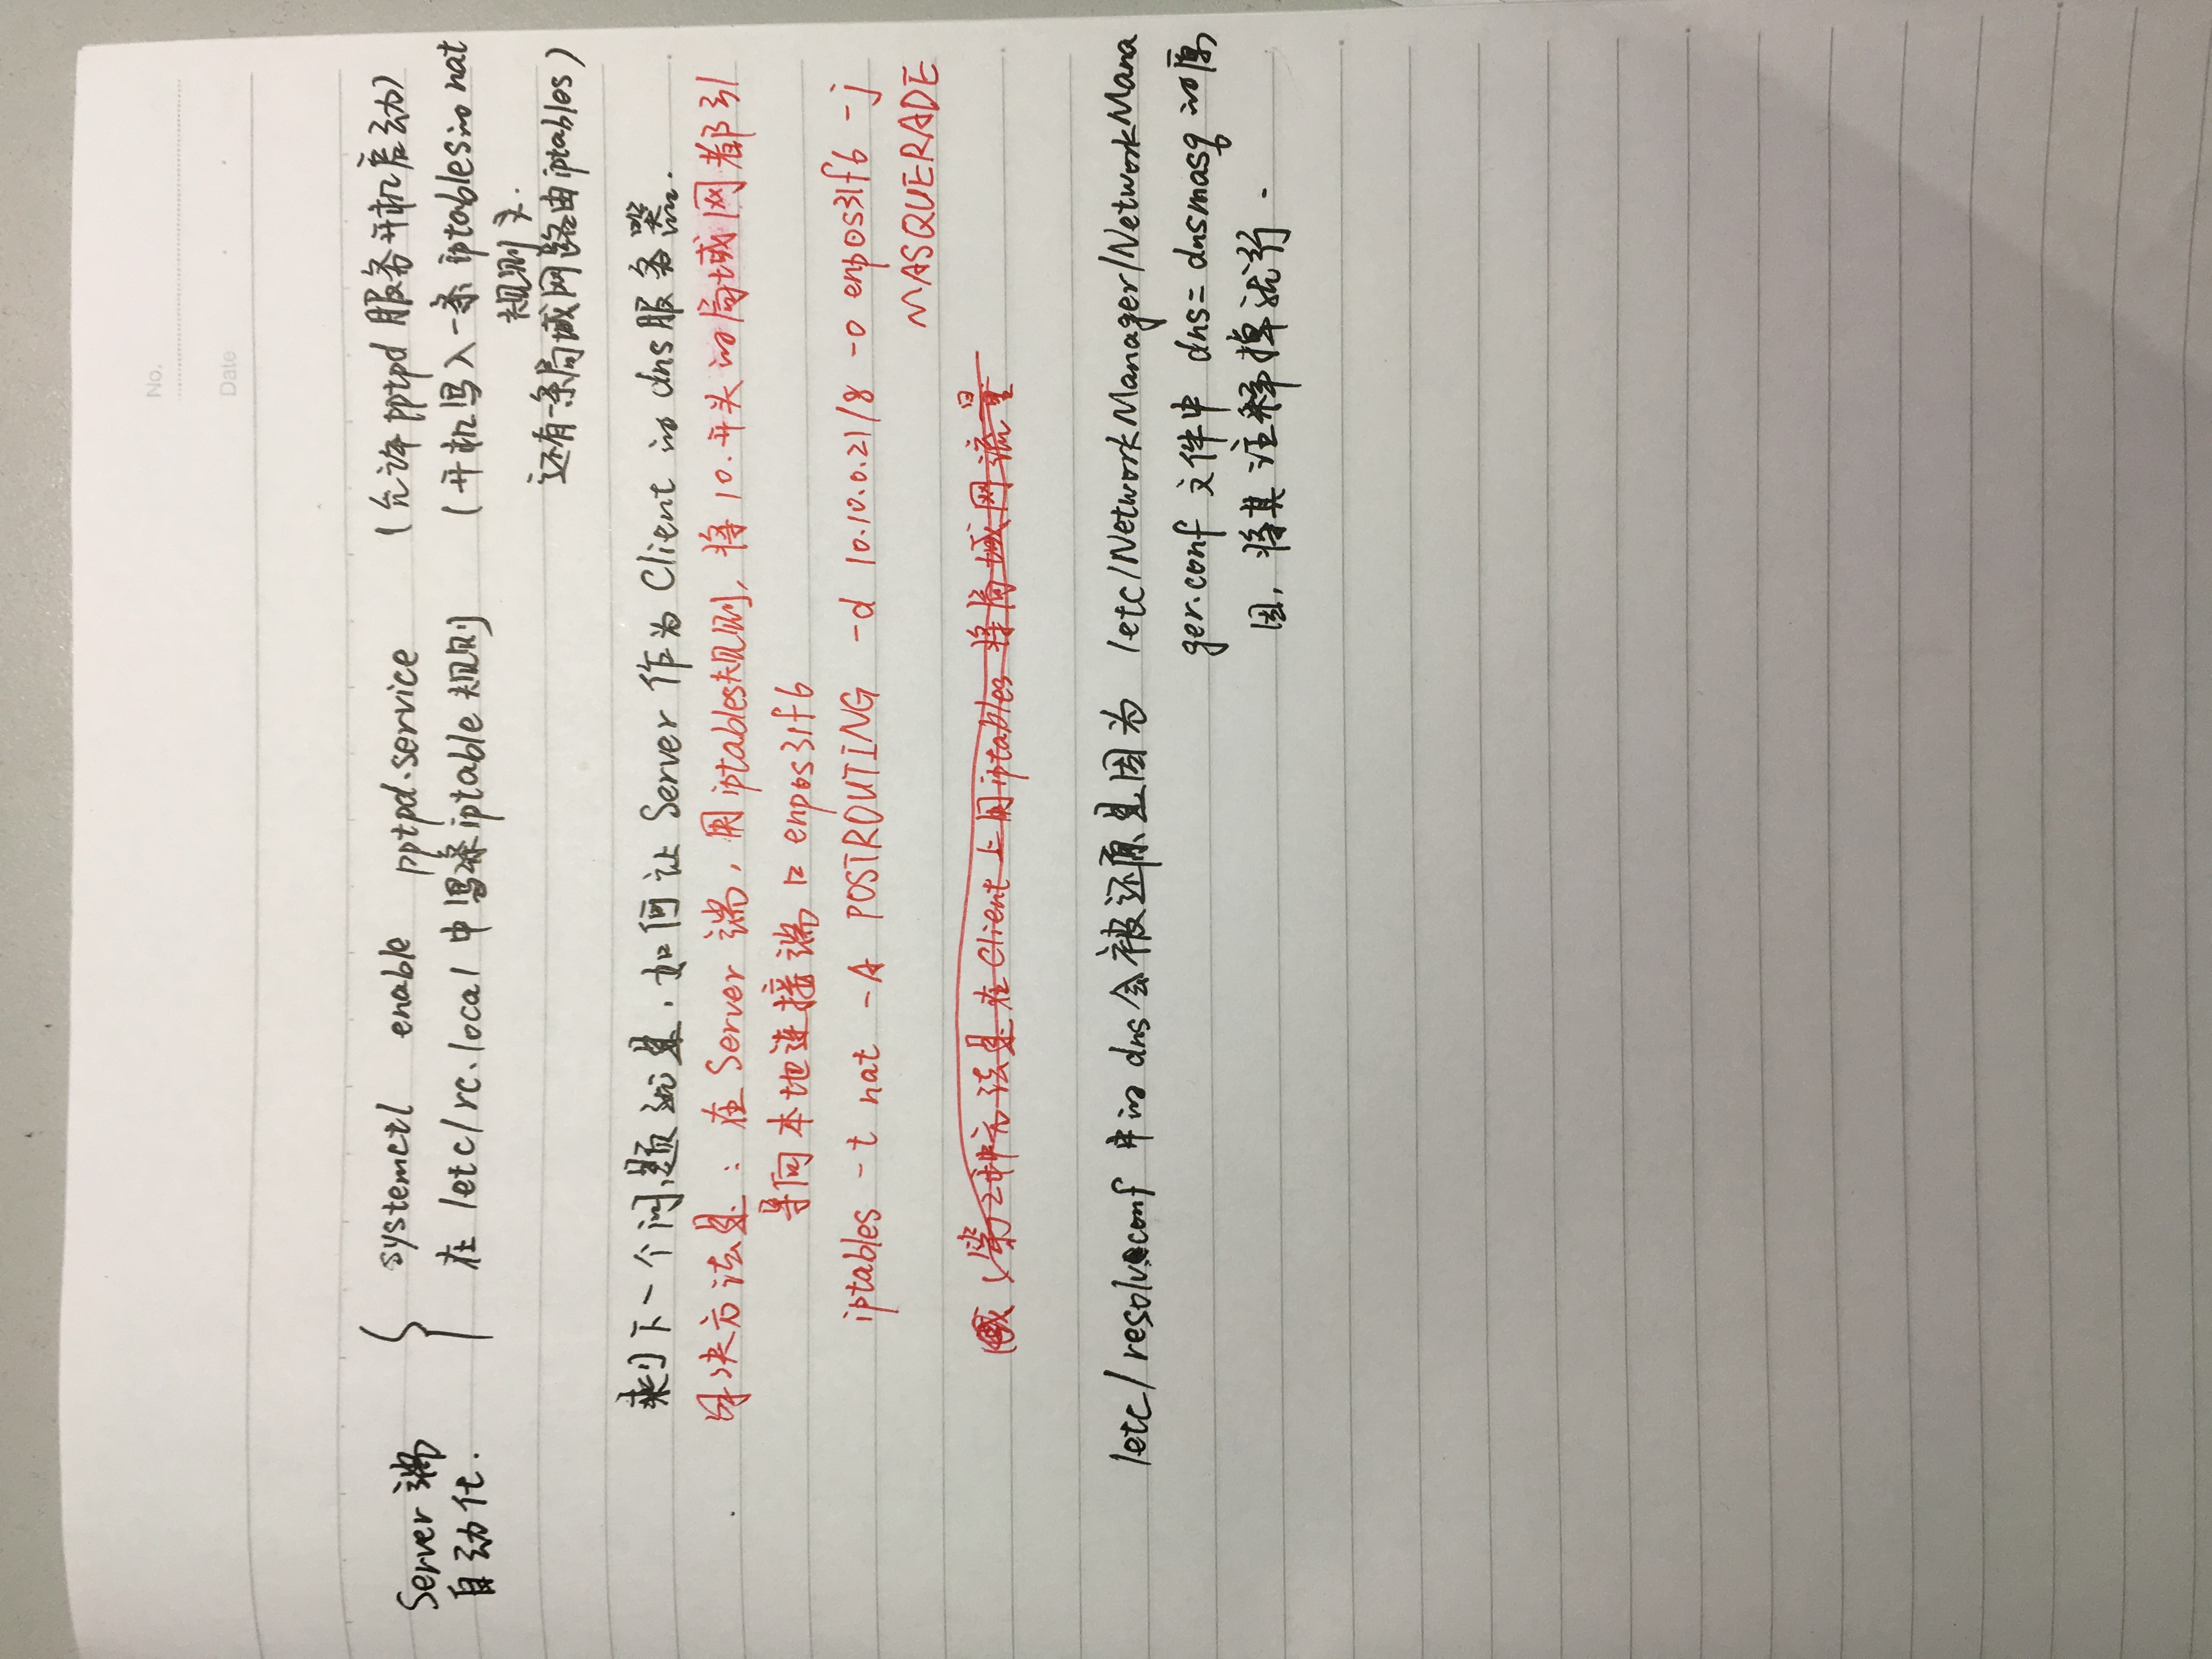 No.
Date
Server端 自动化.
systemctl enable pptpd.service (允许pptpd服务开机启动)
在/etc/rc.local中写条iptable规则 (开机写入一条iptables的nat
规则
还有一条局域网路由iptables)
剩下一个问题就是,如何让Server作为Client的dns服务器.
解决方法是:在Server端,用iptables规则,将10.开头的局域网都引
导向本地连接端口enp0s31f6
iptables -t nat -A POSTROUTING -d 10.10.0.21/8 -o enp0s31f6 -j
MASQUERADE
第2种方法是在Client上用iptables将局域网流量
/etc/resolv.conf中的dns会被还原是因为 /etc/NetworkManager/NetworkMana
ger.conf 文件中 dns=dnsmasq的原
因,将其注释掉就行.